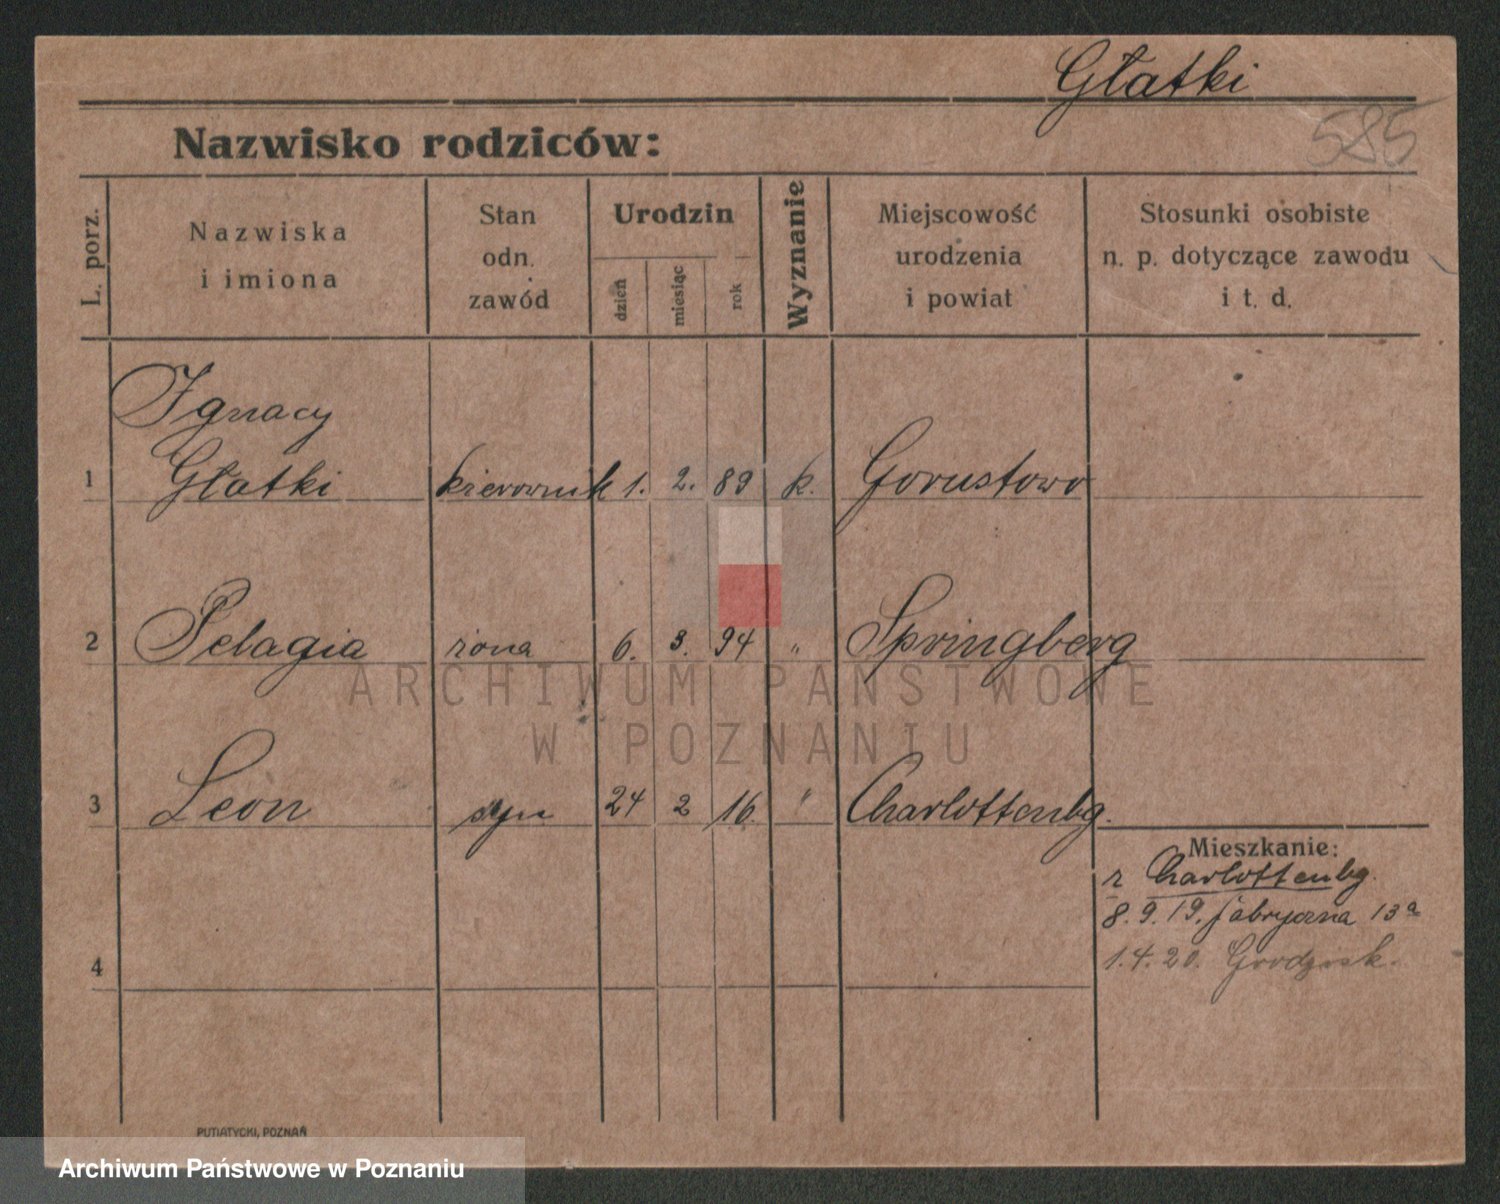 Głatki
585
Nazwisko rodziców:
L. porz.
Nazwiska
i imiona
Stan
odn.
zawód
Urodzin
dzień
miesiąc
rok
Wyznanie
Miejscowość
urodzenia
i powiat
Stosunki osobiste
n. p. dotyczące zawodu
i t. d.
Ignacy
1 Głatki kierownik 1. 2. 89 k. Gorustowo
2 Pelagia żona 6. 3. 94 " Springberg
3 Leon syn 24 2 16 " Charlottenbg.
Mieszkanie:
z Charlottenbg.
8.9.19. fabryczna 13a
1.4.20. Grodzisk.
4
PUTIATYCKI, POZNAŃ
ARCHIWUM PAŃSTWOWE
W POZNANIU
Archiwum Państwowe w Poznaniu